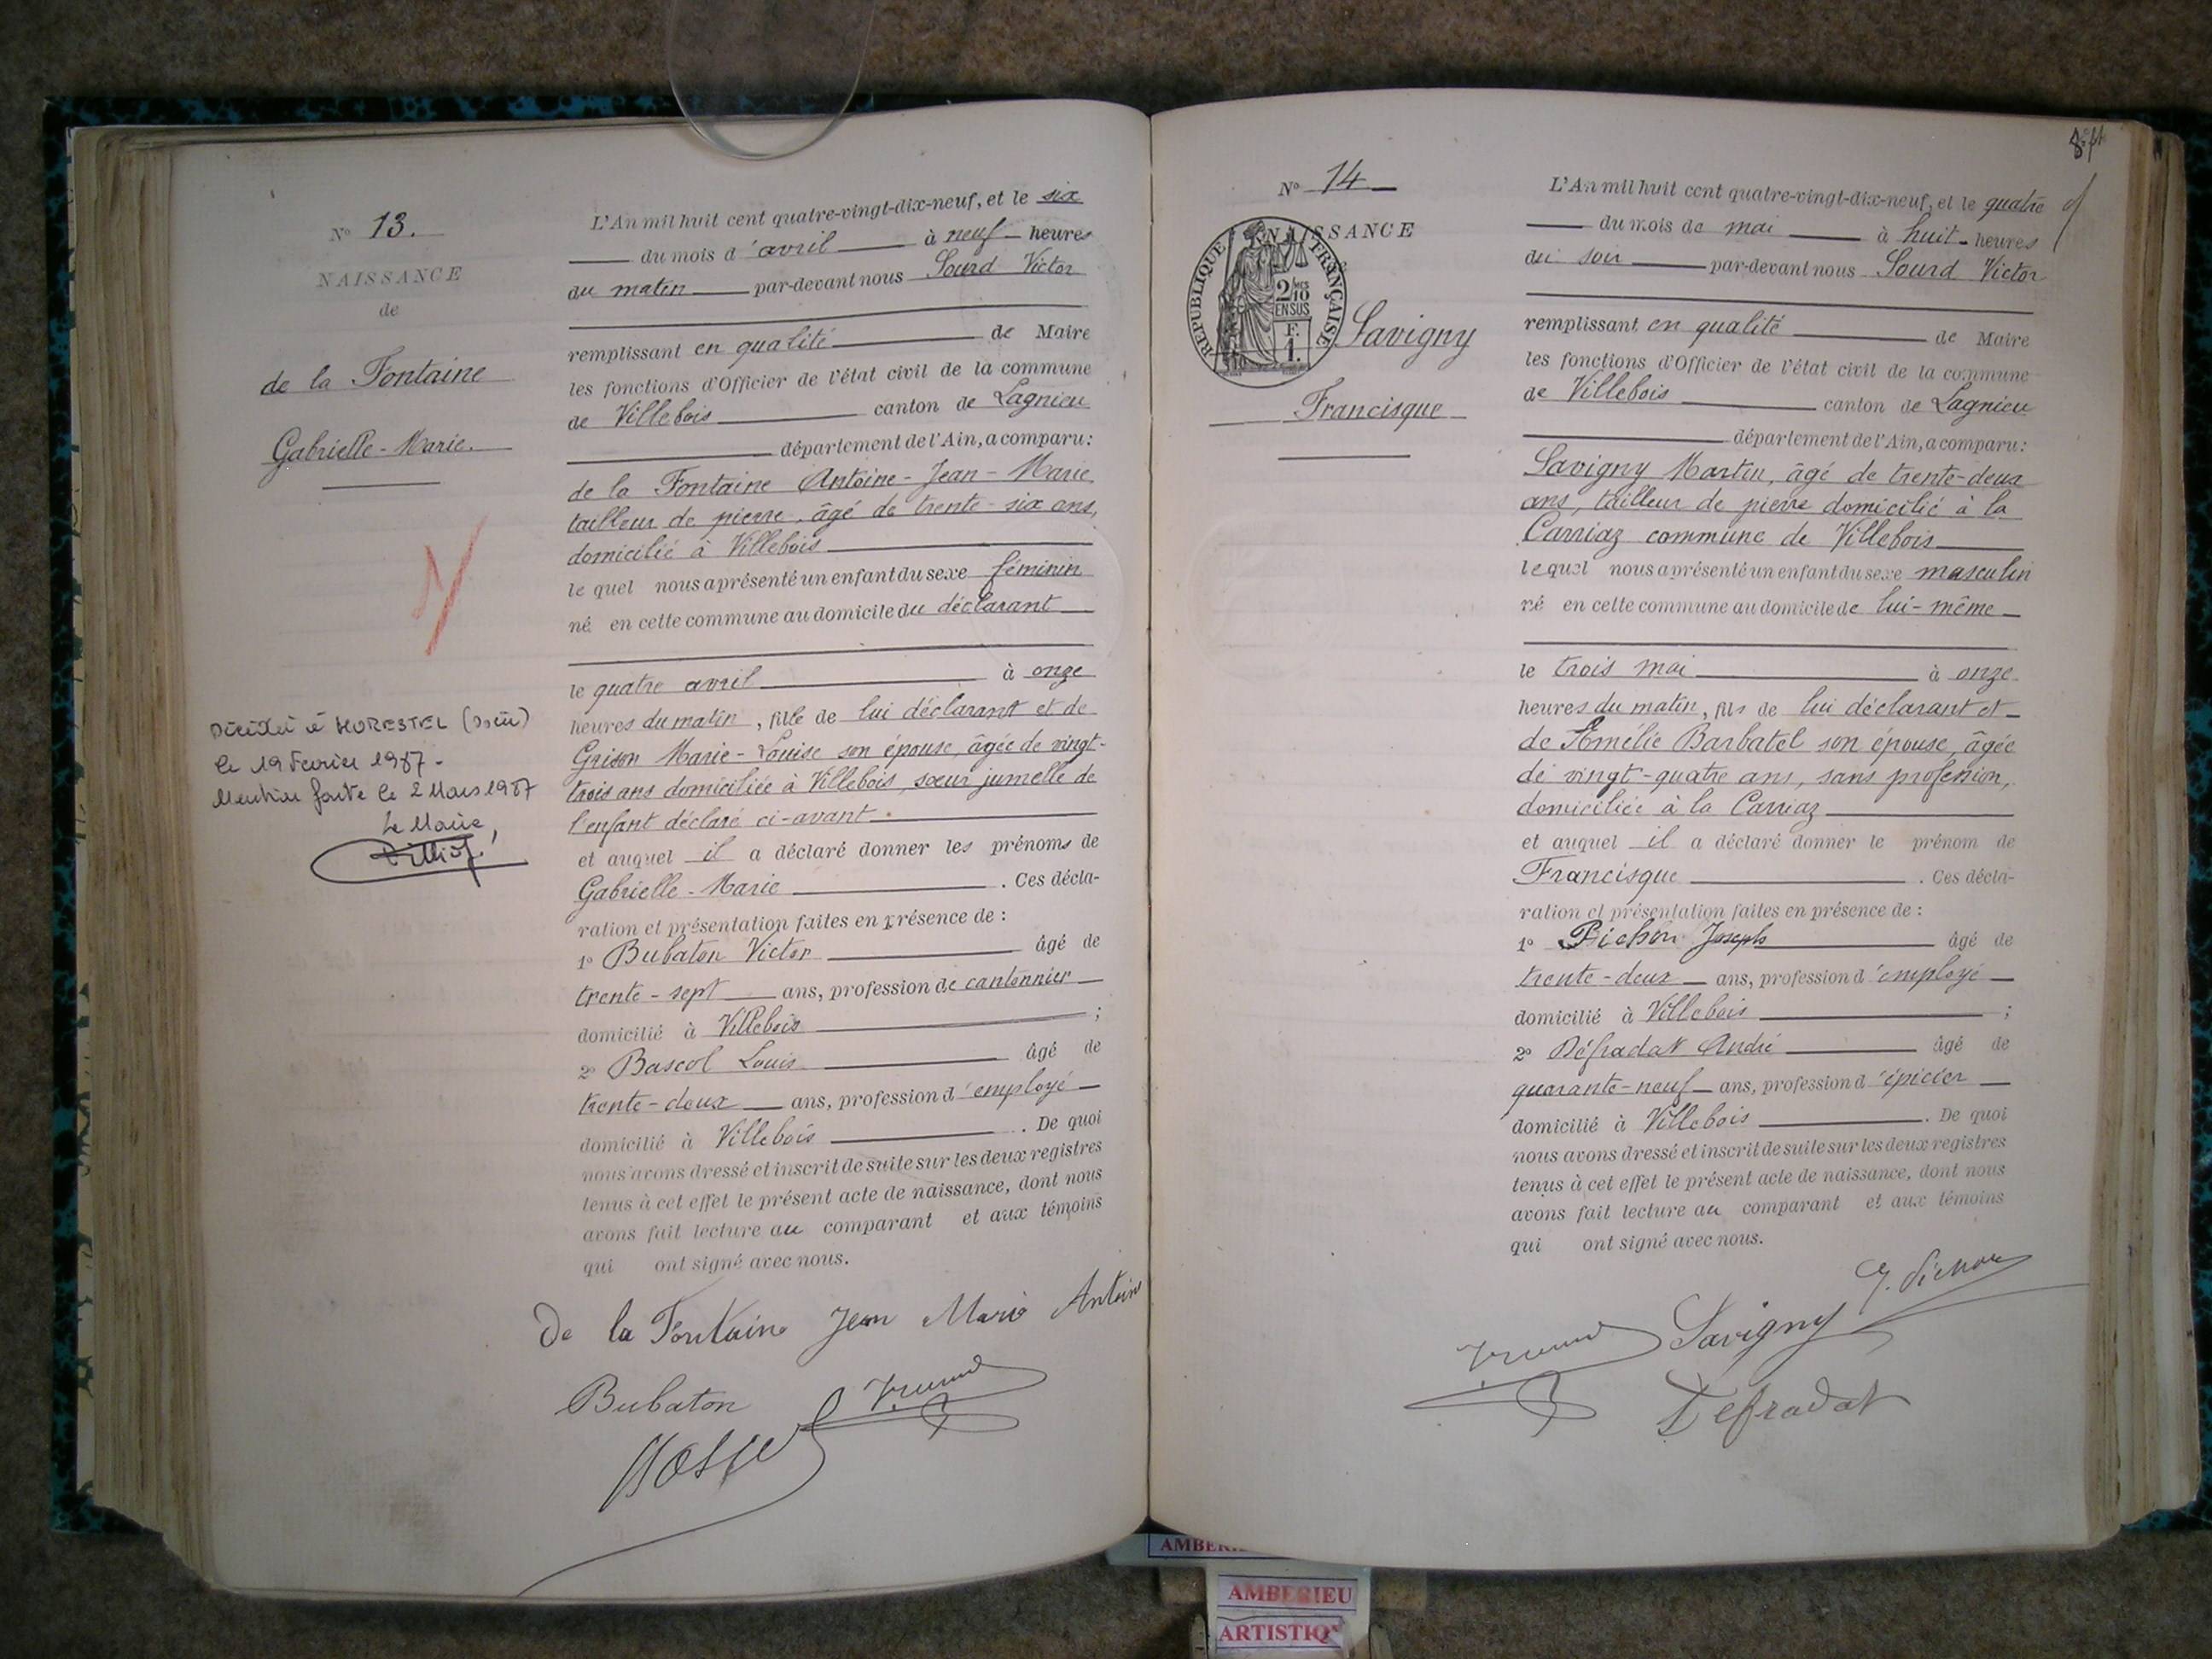 N° 13.
NAISSANCE
de
de la Fontaine
Gabrielle-Marie.
Décédée à MORESTEL (Isère)
le 19 Février 1987-
Mention faite le 2 Mars 1987
Le Maire,
L'An mil huit cent quatre-vingt-dix-neuf, et le six
du mois d'avril à neuf heures
du matin par-devant nous Sourd Victor
remplissant en qualité de Maire
les fonctions d'Officier de l'état civil de la commune
de Villebois canton de Lagnieu
département de l'Ain, a comparu:
de la Fontaine Antoine-Jean-Marie,
tailleur de pierre, âgé de trente-six ans,
domicilié à Villebois
le quel nous a présenté un enfant du sexe féminin
né en cette commune au domicile du déclarant
le quatre avril à onze
heures du matin, fille de lui déclarant et de
Grison Marie-Louise son épouse, âgée de vingt-
trois ans domiciliée à Villebois, sœur jumelle de
l'enfant déclaré ci-avant.
et auquel il a déclaré donner les prénoms de
Gabrielle-Marie. Ces décla-
ration et présentation faites en présence de :
1° Bubaton Victor âgé de
trente-sept ans, profession de cantonnier
domicilié à Villebois ;
2° Bascol Louis âgé de
trente-deux ans, profession d'employé
domicilié à Villebois. De quoi
nous avons dressé et inscrit de suite sur les deux registres
tenus à cet effet le présent acte de naissance, dont nous
avons fait lecture au comparant et aux témoins
qui ont signé avec nous.
De la Fontaine Jean Marie Antoine
Bubaton
N° 14
NAISSANCE
RÉPUBLIQUE FRANÇAISE
2/10 EN SUS
F.
1.
Savigny
Francisque
L'An mil huit cent quatre-vingt-dix-neuf, et le quatre
du mois de mai à huit heures
du soir par-devant nous Sourd Victor
remplissant en qualité de Maire
les fonctions d'Officier de l'état civil de la commune
de Villebois canton de Lagnieu
département de l'Ain, a comparu:
Savigny Martin, âgé de trente-deux
ans, tailleur de pierre domicilié à la
Carriaz commune de Villebois
le quel nous a présenté un enfant du sexe masculin
né en cette commune au domicile de lui-même
le trois mai à onze
heures du matin, fils de lui déclarant et
de Amélie Barbatel son épouse, âgée
de vingt-quatre ans, sans profession,
domiciliée à la Carriaz
et auquel il a déclaré donner le prénom de
Francisque. Ces décla-
ration et présentation faites en présence de :
1° Pichon Joseph âgé de
trente-deux ans, profession d'employé
domicilié à Villebois ;
2° Défradat André âgé de
quarante-neuf ans, profession d'épicier
domicilié à Villebois. De quoi
nous avons dressé et inscrit de suite sur les deux registres
tenus à cet effet le présent acte de naissance, dont nous
avons fait lecture au comparant et aux témoins
qui ont signé avec nous.
J. Pichon
Savigny
Defradat
AMBERIEU
ARTISTIQ